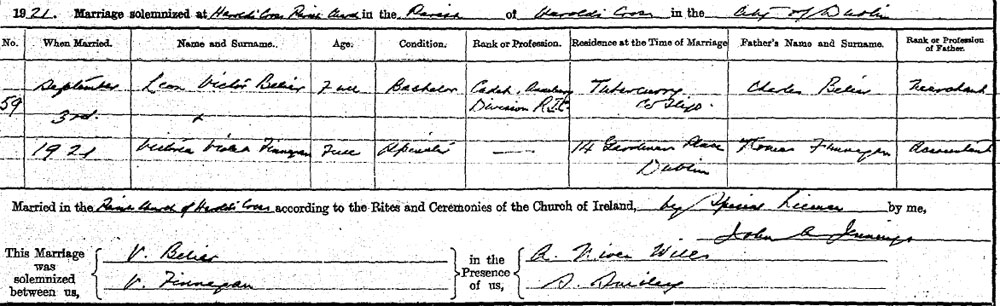 1921. Marriage solemnized at Harold's Cross Parish Church in the Parish of Harold's Cross in the City of Dublin
No. When Married. Name and Surname. Age. Condition. Rank or Profession. Residence at the Time of Marriage Father's Name and Surname. Rank or Profession of Father.
59 September 3rd. 1921 Leon Victor Belier Full Bachelor Cadet, Auxiliary Division R.I.C. Tubercurry Co Sligo. Charles Belier Merchant
&
Victoria Violet Finnegan Full Spinster — 14 Place Dublin Thomas Finnegan Accountant
Married in the Parish Church of Harold's Cross according to the Rites and Ceremonies of the Church of Ireland, by Special Licence by me,
John A Jennings
This Marriage was solemnized between us, V. Belier in the Presence of us, A. Wills
V. Finnegan